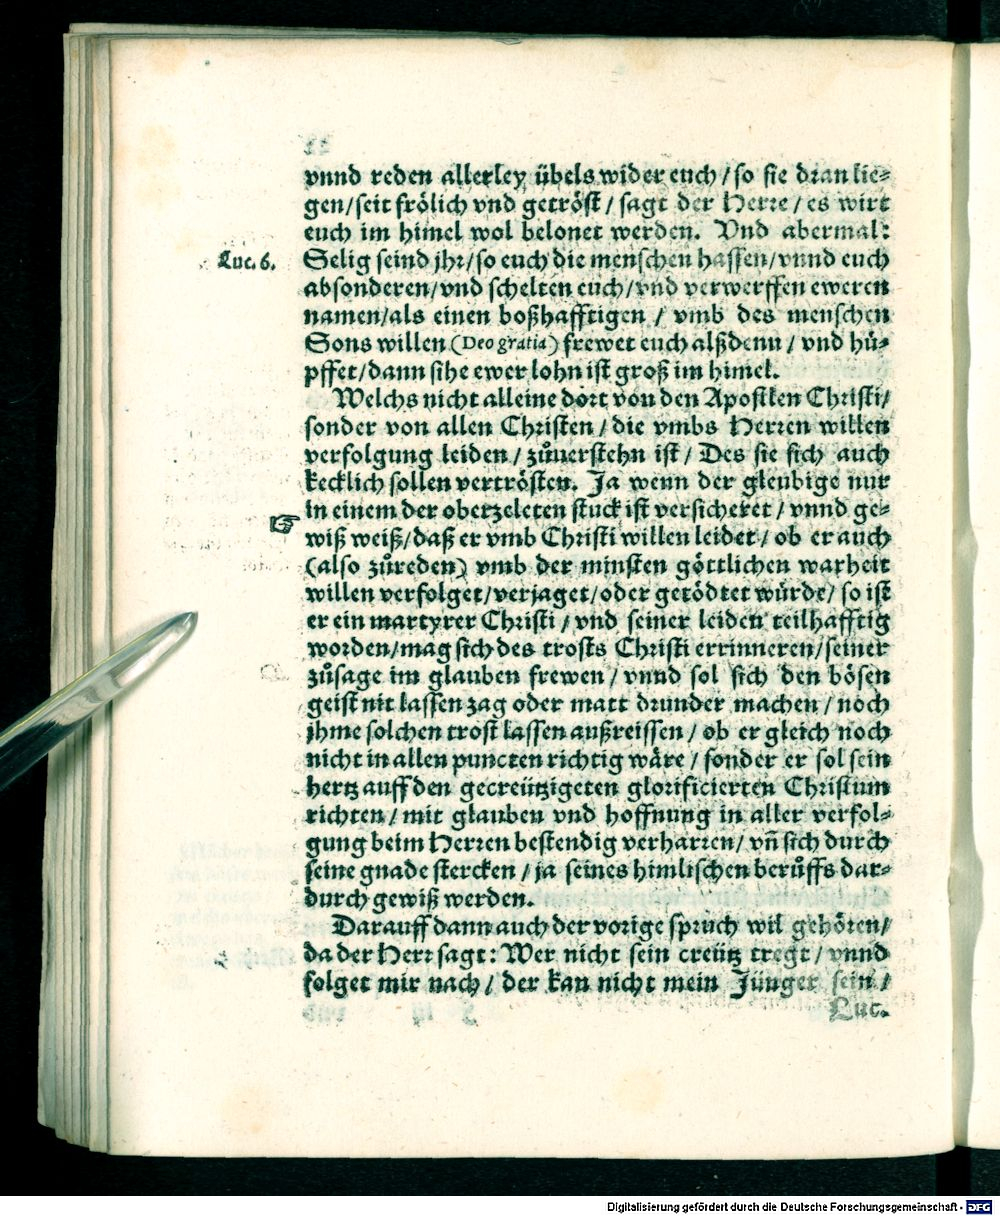 vnnd reden allerley übels wider euch / so sie dran lie⸗
gen / seit frölich vnd getröst / sagt der Herre / es wirt
euch im himel wol belonet werden. Vnd abermal:
Luc. 6.
Selig seind jhr / so euch die menschen hassen / vnnd euch
absonderen / vnd schelten euch / vnd verwerffen eweren
namen / als einen boßhafftigen / vmb des menschen
Sons willen (Deo gratia) frewet euch alßdenn / vnd hü⸗
pffet / dann sihe ewer lohn ist groß im himel.
Welchs nicht alleine dort von den Apostlen Christi /
sonder von allen Christen / die vmbs Herren willen
verfolgung leiden / zůuerstehn ist / Des sie sich auch
kecklich sollen vertrösten. Ja wenn der gleubige nur
☞ in einem der oberzeleten stuck ist versicheret / vnnd ge⸗
wiß weiß / daß er vmb Christi willen leidet / ob er auch
(also zůreden) vmb der minsten göttlichen warheit
willen verfolget / verjaget / oder getödtet würde / so ist
er ein martyrer Christi / vnd seiner leiden teilhafftig
worden / mag sich des trosts Christi errinneren / seiner
zůsage im glauben frewen / vnnd sol sich den bösen
geist nit lassen zag oder matt drunder machen / noch
jhme solchen trost lassen außreissen / ob er gleich noch
nicht in allen puncten richtig wäre / sonder er sol sein
hertz auff den gecreützigeten glorificierten Christum
richten / mit glauben vnd hoffnung in aller verfol⸗
gung beim Herren bestendig verharren / vñ sich durch
seine gnade stercken / ja seines himlischen berůffs dar⸗
durch gewiß werden.
Darauff dann auch der vorige spruch wil gehören /
da der Herr sagt: Wer nicht sein creütz tregt / vnnd
folget mir nach / der kan nicht mein Jünger sein /
Luc.
Digitalisierung gefördert durch die Deutsche Forschungsgemeinschaft - DFG